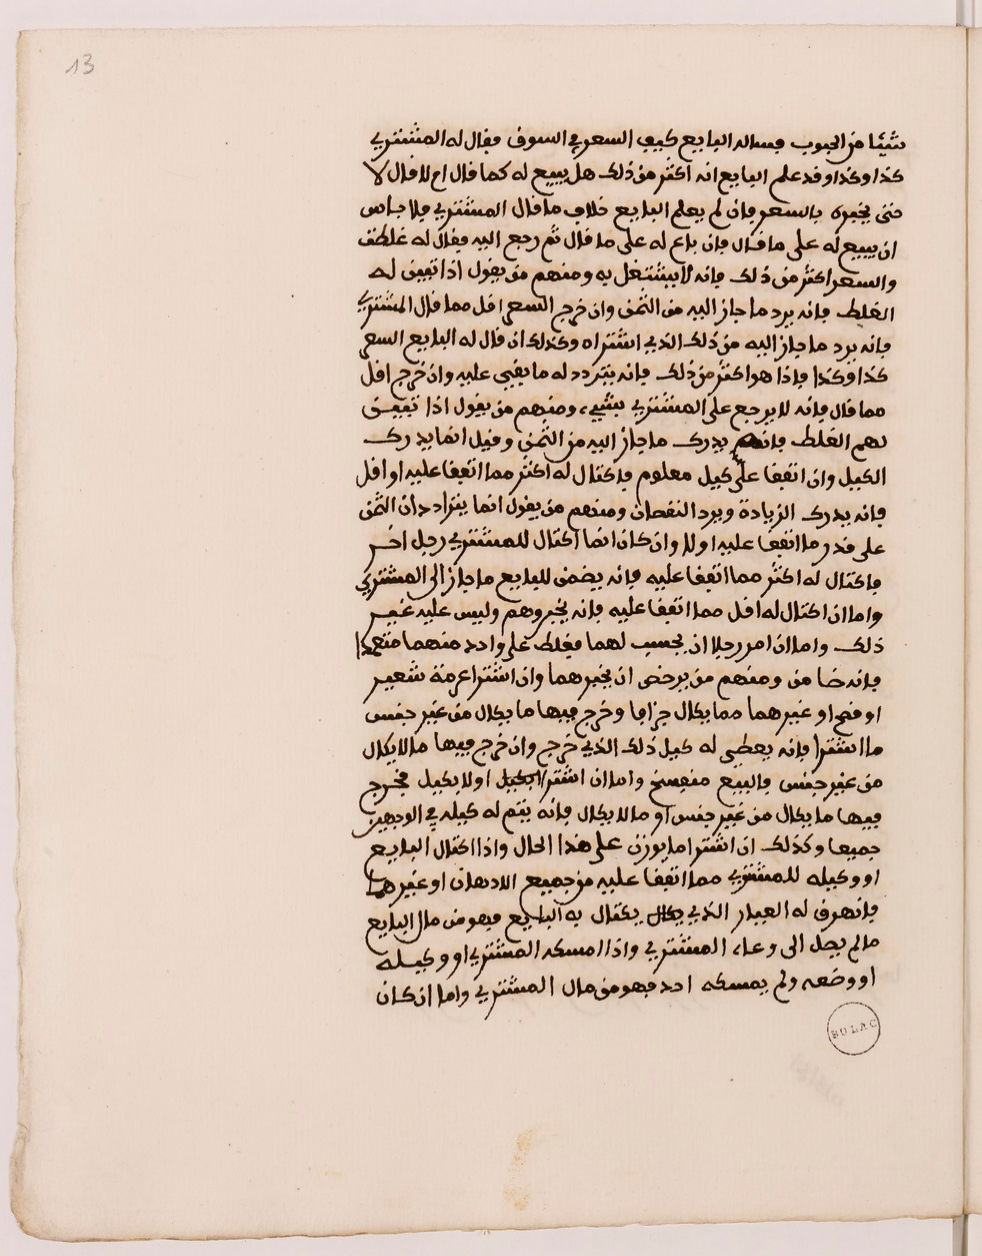 13
شيئا من الحبوب فساله البايع كيف السعر في السوق فقال له المشتري
كذا وكذا وقد علم البايع انه اكثر من ذلك هل يبيع له كما قال ام لا قال لا
حتى يخبره بالسعر فان لم يعلم البايع خلاف ما قال المشتري فلا باس
ان يبيع له على ما قال فان باع له على ما قال ثم رجع اليه فقال له غلطت
والسعر اكثر من ذلك فانه لا يشتغل به ومنهم من يقول اذا تبين له
الغلط فانه يرد ما جاز اليه من الثمن وان خرج السعر اقل مما قال المشتري
فانه يرد ما جاز اليه من ذلك الذي اشتراه وكذلك ان قال له البايع السعر
كذا وكذا فاذا هو اكثر من ذلك فانه يتردد له ما بقي عليه وان خرج اقل
مما قال فانه لا يرجع على المشتري بشيء ومنهم من يقول اذا تبين
لهم الغلط فانه يدرك ما جاز اليه من الثمن وقيل انما يدرك
الكيل وان اتفقا على كيل معلوم فاكتال له اكثر مما اتفقا عليه او اقل
فانه يدرك الزيادة ويرد النقصان ومنهم من يقول انما يترادان الثمن
على قدر ما اتفقا عليه اولا وان كان انما اكتال للمشتري رجل اخر
فاكتال له اكثر مما اتفقا عليه فانه يضمن للبايع ما جاز الى المشتري
واما ان اكتال له اقل مما اتفقا عليه فانه يخبرهم وليس عليه غير
ذلك واما ان امر رجلا ان يحسب لهما فغلط على واحد منهما متعمدا
فانه ضامن ومنهم من يرخص ان يخبرهما وان اشترا عرمة شعير
او قمح او غيرهما مما يكال جزافا وخرج فيها ما يكال من غير جنس
ما اشترا فانه يعطي له كيل ذلك الذي خرج وان خرج فيها ما لا يكال
من غير جنس فالبيع منفسخ واما ان اشترا بكيل او لا بكيل فخرج
فيها ما يكال من غير جنس او ما لا يكال فانه يتم له كيله في الوجهين
جميعا وكذلك ان اشترا ما يوزن على هذا الحال واذا اكتال البايع
او وكيله للمشتري مما اتفقا عليه من جميع الادهان او غيرها
فانهرق له العيار الذي يكتال به البايع فهو من مال البايع
ما لم يصل الى وعاء المشتري واذا امسكه المشتري او وكيله
او وضعه ولم يمسكه احد فهو من مال المشتري واما ان كان
BULAC